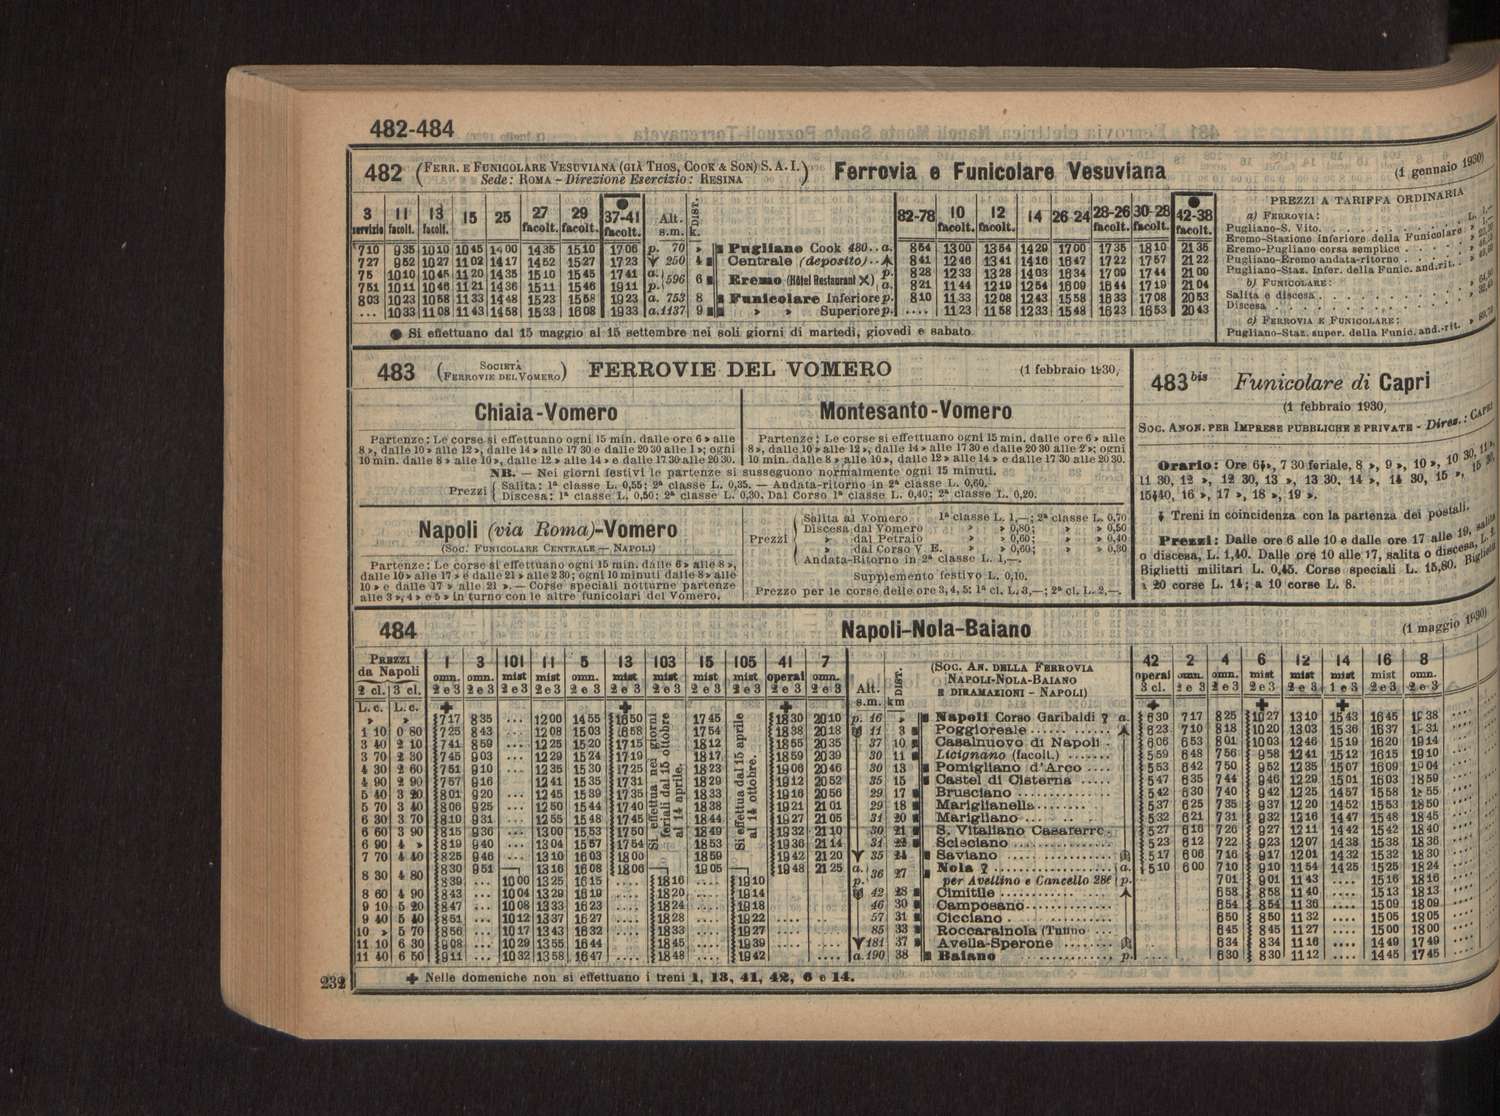 482-484
482 (FERR. E FUNICOLARE VESUVIANA (GIÀ THOS. COOK & SON) S. A. I.) Ferrovia e Funicolare Vesuviana (1 gennaio 1930)
Sede: ROMA - Direzione Esercizio: RESINA
3 servizio 11 facolt. 13 facolt. 15 25 27 facolt. 29 facolt. ● 37-41 facolt. Alt. s.m. DIST. k. 82-78 10 facolt. 12 facolt. 14 26-24 28-26 facolt. 30-28 facolt. ● 42-38 facolt.
7 10 9 35 10 10 10 45 14 00 14 35 15 10 17 06 p. 70 » Pugliano Cook 480.. a. 8 54 13 00 13 54 14 29 17 00 17 35 18 10 21 35
7 27 9 52 10 27 11 02 14 17 14 52 15 27 17 23 250 4 Centrale (deposito).. 8 41 12 46 13 41 14 16 16 47 17 22 17 57 21 22
7 5 10 10 10 45 11 20 14 35 15 10 15 45 17 41 a. 596 6 Eremo (Hôtel Restaurant) p. 8 28 12 33 13 28 14 03 16 34 17 09 17 44 21 09
7 51 10 11 10 46 11 21 14 36 15 11 15 46 19 11 p. a. 8 21 11 44 12 19 12 54 16 09 16 44 17 19 21 04
8 03 10 23 10 58 11 33 14 48 15 23 15 58 19 23 a. 753 8 Funicolare Inferiore p. 8 10 11 33 12 08 12 43 15 58 16 33 17 08 20 53
... 10 33 11 08 11 43 14 58 15 33 16 08 19 33 a. 1137 9 » » Superiore p. .... 11 23 11 58 12 33 15 48 16 23 16 53 20 43
● Si effettuano dal 15 maggio al 15 settembre nei soli giorni di martedì, giovedì e sabato.
PREZZI A TARIFFA ORDINARIA
a) FERROVIA:
Pugliano-S. Vito
Eremo-Stazione inferiore della Funicolare
Eremo-Pugliano corsa semplice
Pugliano-Eremo andata-ritorno
Pugliano-Staz. Infer. della Funic. and.rit.
b) FUNICOLARE:
Salita e discesa
Discesa
c) FERROVIA E FUNICOLARE:
Pugliano-Staz. super. della Funic. and.-rit.
483 (SOCIETÀ FERROVIE DEL VOMERO) FERROVIE DEL VOMERO (1 febbraio 1930,
Chiaia-Vomero
Partenze: Le corse si effettuano ogni 15 min. dalle ore 6 » alle
8 », dalle 10 » alle 12 », dalle 14 » alle 17 30 e dalle 20 30 alle 1 »; ogni
10 min. dalle 8 » alle 10 », dalle 12 » alle 14 » e dalle 17 30 alle 20 30.
Montesanto-Vomero
Partenze: Le corse si effettuano ogni 15 min. dalle ore 6 » alle
8 », dalle 10 » alle 12 », dalle 14 » alle 17 30 e dalle 20 30 alle 2 »; ogni
10 min. dalle 8 » alle 10 », dalle 12 » alle 14 » e dalle 17 30 alle 20 30.
NB. — Nei giorni festivi le partenze si susseguono normalmente ogni 15 minuti.
Prezzi { Salita: 1ª classe L. 0,55; 2ª classe L. 0,35. — Andata-ritorno in 2ª classe L. 0,60.
Discesa: 1ª classe L. 0,50; 2ª classe L. 0,30. Dal Corso 1ª classe L. 0,40; 2ª classe L. 0,20.
Napoli (via Roma)-Vomero
(SOC. FUNICOLARE CENTRALE — NAPOLI)
Partenze: Le corse si effettuano ogni 15 min. dalle 6 » alle 8 »,
dalle 10 » alle 17 » e dalle 21 » alle 2 30; ogni 10 minuti dalle 8 » alle
10 » e dalle 17 » alle 21 ». — Corse speciali notturne partenze
alle 3 », 4 » e 5 » in turno con le altre funicolari del Vomero.
Prezzi { Salita al Vomero 1ª classe L. 1,—; 2ª classe L. 0,70
Discesa dal Vomero » » 0,80; » » 0,50
» dal Petraio » » 0,60; » » 0,40
» dal Corso V. E. » » 0,60; » » 0,30
Andata-Ritorno in 2ª classe L. 1,—.
Supplemento festivo L. 0,10.
Prezzo per le corse delle ore 3, 4, 5: 1ª cl. L. 3,—; 2ª cl. L. 2,—.
483 bis Funicolare di Capri
(1 febbraio 1930,
SOC. ANON. PER IMPRESE PUBBLICHE E PRIVATE - Direz.: CAPRI
Orario: Ore 6 », 7 30 feriale, 8 », 9 », 10 », 10 30, 11 »,
11 30, 12 », 12 30, 13 », 13 30, 14 », 14 30, 15 », 15 30,
15 40, 16 », 17 », 18 », 19 ».
Treni in coincidenza con la partenza dei postali.
Prezzi: Dalle ore 6 alle 10 e dalle ore 17 alle 19, salita
o discesa, L. 1,40. Dalle ore 10 alle 17, salita o discesa, L. 2.
Biglietti militari L. 0,45. Corse speciali L. 15,80. Biglietti
a 20 corse L. 14; a 10 corse L. 8.
484 Napoli-Nola-Baiano (1 maggio 1930)
PREZZI da Napoli 2 cl. 3 cl. 1 omn. 2 e 3 3 omn. 2 e 3 101 mist 2 e 3 11 mist 2 e 3 5 omn. 2 e 3 13 mist 2 e 3 103 mist 2 e 3 15 mist 2 e 3 105 mist 2 e 3 41 operai 2 e 3 7 omn. 2 e 3 Alt. s.m. DIST. km (SOC. AN. DELLA FERROVIA NAPOLI-NOLA-BAIANO E DIRAMAZIONI - NAPOLI) 42 operai 3 cl. 2 omn. 2 e 3 4 omn. 2 e 3 6 mist 2 e 3 12 mist 2 e 3 14 mist 1 e 3 16 mist 2 e 3 8 omn. 2 e 3
L. c. L. c.
» » 7 17 8 35 ... 12 00 14 55 16 50 17 45 18 30 20 10 p. 16 » Napoli Corso Garibaldi a. 6 30 7 17 8 25 10 27 13 10 15 43 16 45 19 38
1 10 0 80 7 25 8 43 ... 12 08 15 03 16 58 17 54 18 38 20 18 11 3 Poggioreale 6 23 7 10 8 18 10 20 13 03 15 36 16 37 19 31
3 40 2 10 7 41 8 59 ... 12 25 15 20 17 15 18 12 18 55 20 35 37 10 Casalnuovo di Napoli 6 06 6 53 8 01 10 03 12 46 15 19 16 20 19 14
3 70 2 30 7 45 9 03 ... 12 29 15 24 17 19 18 17 18 59 20 39 30 11 Licignano (facolt.) 5 59 6 48 7 56 9 58 12 41 15 12 16 15 19 10
4 30 2 60 7 51 9 10 ... 12 35 15 30 17 25 18 23 19 06 20 46 30 13 Pomigliano d'Arco 5 53 6 42 7 50 9 52 12 35 15 07 16 09 19 04
4 90 2 90 7 57 9 16 ... 12 41 15 35 17 31 18 29 19 12 20 52 35 15 Castel di Cisterna 5 47 6 35 7 44 9 46 12 29 15 01 16 03 18 59
5 40 3 20 8 01 9 20 ... 12 45 15 39 17 35 18 33 19 16 20 56 29 17 Brusciano 5 42 6 30 7 40 9 42 12 25 14 57 15 58 18 55
5 70 3 40 8 06 9 25 ... 12 50 15 44 17 40 18 38 19 21 21 01 29 18 Mariglianella 5 37 6 25 7 35 9 37 12 20 14 52 15 53 18 50
6 30 3 70 8 10 9 31 ... 12 55 15 48 17 45 18 44 19 27 21 05 31 20 Marigliano 5 32 6 21 7 31 9 32 12 16 14 47 15 48 18 45
6 60 3 90 8 15 9 36 ... 13 00 15 53 17 50 18 49 19 32 21 10 30 21 S. Vitaliano Casaferro 5 27 6 16 7 26 9 27 12 11 14 42 15 42 18 40
6 90 4 » 8 19 9 40 ... 13 04 15 57 17 54 18 53 19 36 21 14 31 22 Scisciano 5 23 6 12 7 22 9 23 12 07 14 38 15 38 18 36
7 70 4 40 8 25 9 46 ... 13 10 16 03 18 00 18 59 19 42 21 20 35 24 Saviano 5 17 6 06 7 16 9 17 12 01 14 32 15 32 18 30
8 30 4 80 8 30 9 51 13 16 16 08 18 06 19 05 19 48 21 25 a. 36 27 Nola a. 5 10 6 00 7 10 9 10 11 54 14 25 15 25 18 24
8 39 ... 10 00 13 25 16 15 .... 18 16 .... 19 10 p. per Avellino e Cancello 286 p. 7 01 9 01 11 43 .... 15 16 18 16
8 60 4 90 8 43 ... 10 04 13 29 16 19 .... 18 20 .... 19 14 42 28 Cimitile 6 58 8 58 11 40 .... 15 13 18 13
9 10 5 20 8 47 ... 10 08 13 33 16 23 .... 18 24 .... 19 18 46 30 Camposano 6 54 8 54 11 36 .... 15 09 18 09
9 40 5 40 8 51 ... 10 12 13 37 16 27 .... 18 28 .... 19 22 57 31 Cicciano 6 50 8 50 11 32 .... 15 05 18 05
10 » 5 70 8 56 ... 10 17 13 43 16 32 .... 18 33 .... 19 27 85 33 Roccarainola (Tufino 6 45 8 45 11 27 .... 15 00 18 00
11 10 6 30 9 08 ... 10 29 13 55 16 44 .... 18 45 .... 19 39 181 37 Avella-Sperone 6 34 8 34 11 16 .... 14 49 17 49
11 40 6 50 9 11 ... 10 32 13 58 16 47 .... 18 48 .... 19 42 a. 190 38 Baiano p. 6 30 8 30 11 12 .... 14 45 17 45
Si effettua nei giorni feriali dal 15 ottobre al 14 aprile.
Si effettua dal 15 aprile al 14 ottobre.
✚ Nelle domeniche non si effettuano i treni 1, 13, 41, 42, 6 e 14.
232